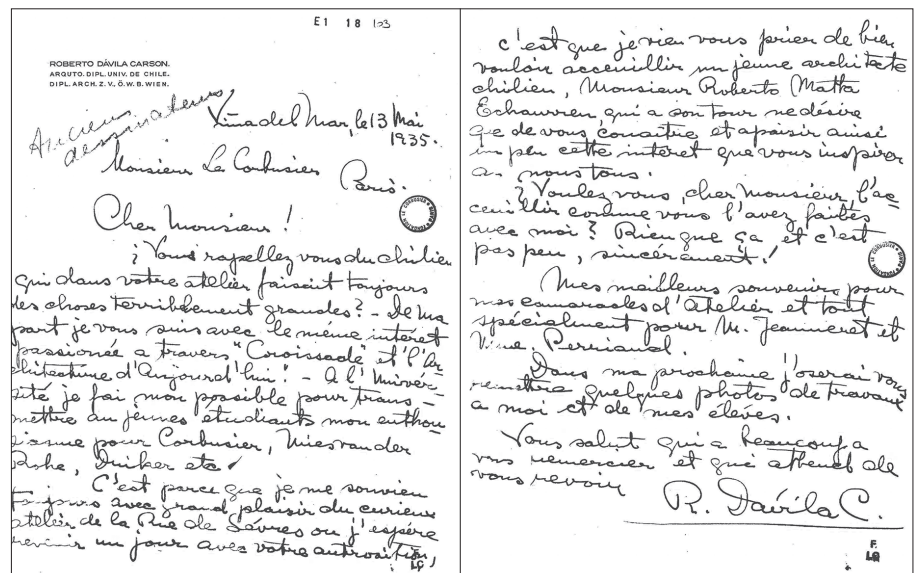 E1 18 123
ROBERTO DÁVILA CARSON.
ARQUTO. DIPL. UNIV. DE CHILE.
DIPL. ARCH. Z. V. Ö. W. B. WIEN.
Anciens
dessinateurs
Viña del Mar, le 13 Mai
1935.
Monsieur Le Corbusier
Paris.
Cher Monsieur!
¿Vous rapellez vous du chilien
qui dans votre atelier faisait toujours
des choses terriblement grandes? - De ma
part je vous suis avec le même intéret
passionée a travers "Croissade" et "l'Ar
chitecture d'Aujourd'hui". - A l'Univer-
sité je fai mon possible pour trans-
mettre au jeunes étudiants mon enthou
siasme pour Corbusier, Mies van der
Rohe, Duiker etc
C'est parce que je me souvien
toujours avec grand plaisir du curieux
atelier de la Rue de Sévres ou j'espére
revenir un jour avec votre autrosition,
c'est que je vien vous prier de bien
vouloir acceuillir un jeune architecte
chilien, Monsieur Roberto Matta
Echaurren, qui a son tour ne désire
que de vous conaitre et apaisir ainsi
un peu cette intéret que vous inspirer
a nous tous.
? Voulez vous, cher Monsieur, l'ac
ceuillir comme vous l'avez faités
avec moi? Rien que ça et c'est
pas peu, sincérament!
Mes meilleurs souvenirs pour
mes camarades d'Atelier et tout
spécialment pour M. Jeanneret et
Mme. Perriand.
Dans ma prochaine j'oserai vous
remettre quelques photos de travaux
a moi et de mes éléves.
Vous salut qui a beaucoup a
vous remercier et qui attend de
vous revoir
R. Dávila C.
F.
LC
F.
LC